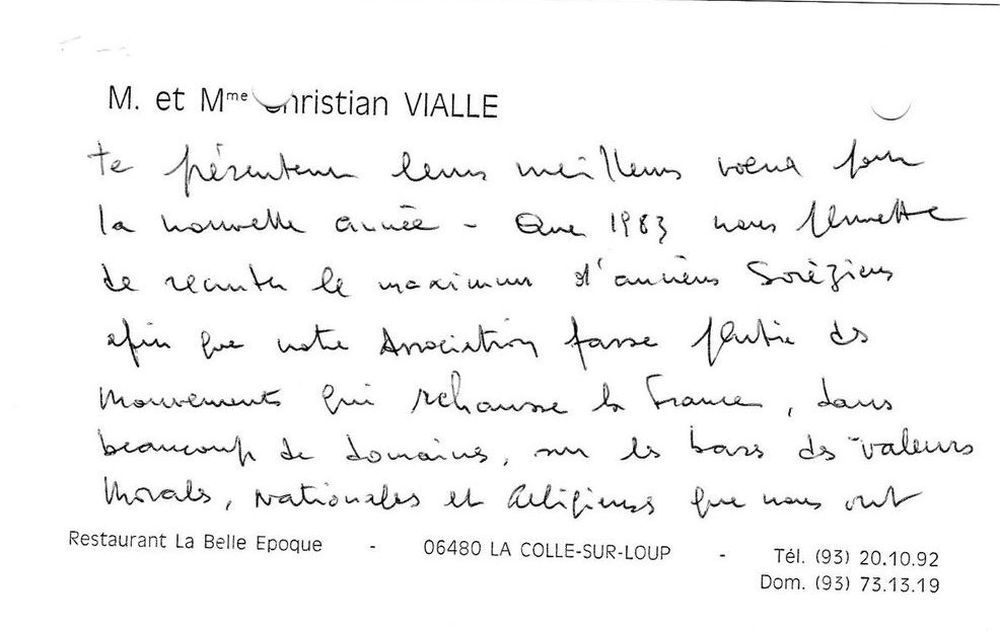 M. et Mme Christian VIALLE
te présentent leurs meilleurs voeux pour
la nouvelle année - Que 1983 nous permette
de recruter le maximum d'anciens Soréziens
afin que notre Association fasse partie des
mouvements qui rehausse la France, dans
beaucoup de domaines, sur les bases des valeurs
Morales, Nationales et Religieuses que nous ont
Restaurant La Belle Epoque - 06480 LA COLLE-SUR-LOUP - Tél. (93) 20.10.92
Dom. (93) 73.13.19